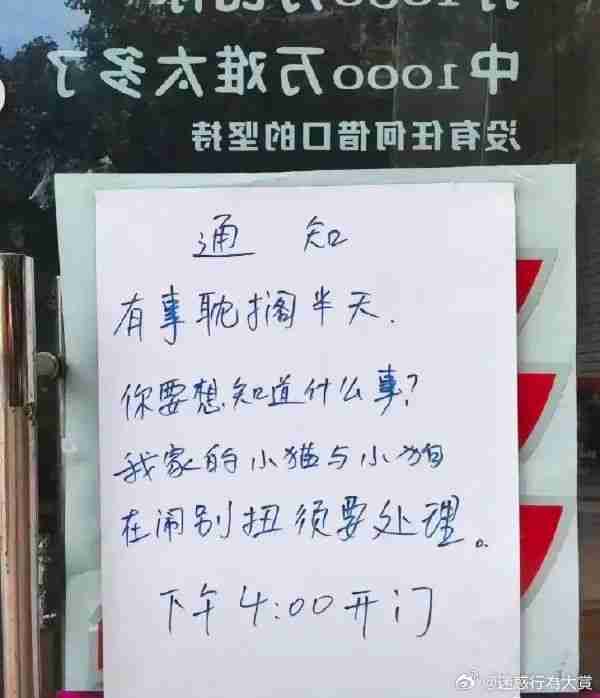 中1000万难太多了
没有任何借口的坚持
通 知
有事耽搁半天.
你要想知道什么事?
我家的小猫与小狗
在闹别扭须要处理。
下午4:00开门
@迷惑行为大赏